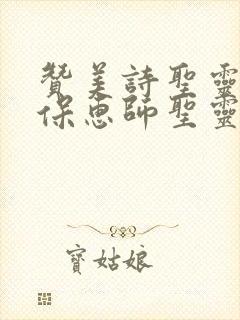 贊美詩聖靈
保惠師聖靈
寶姑娘